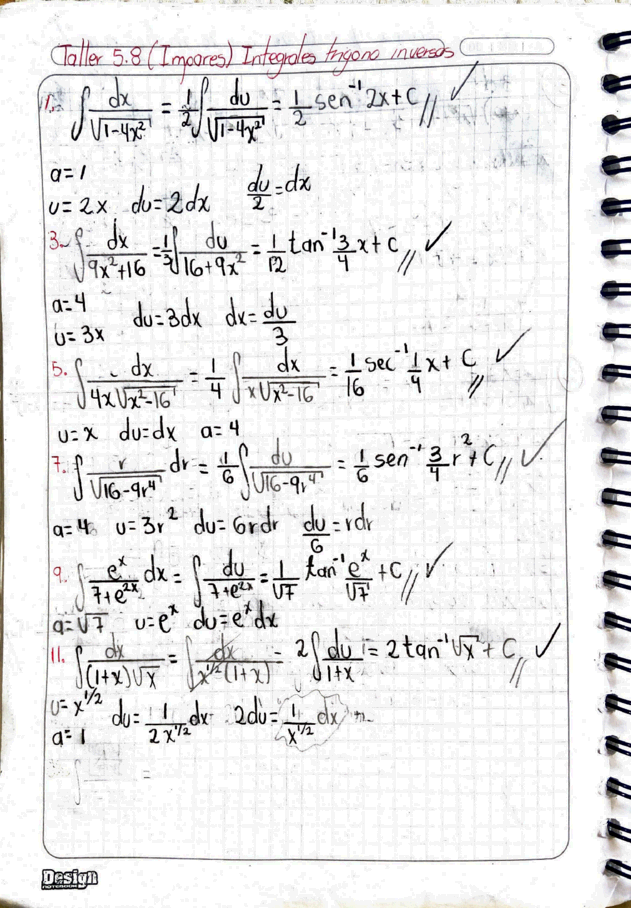 Taller 5.8 (Impares) Integrales trigono inversas
1. ∫ dx/√(1-4x²) = 1/2 ∫ du/√(1-4x²) = 1/2 sen⁻¹ 2x + C // ✓
a=1
u = 2x du = 2dx du/2 = dx
3. ∫ dx/(9x²+16) = 1/3 ∫ du/(16+9x²) = 1/12 tan⁻¹ 3/4 x + C // ✓
a=4
u = 3x du = 3dx dx = du/3
5. ∫ dx/(4x√(x²-16)) = 1/4 ∫ dx/(x√(x²-16)) = 1/16 sec⁻¹ 1/4 x + C // ✓
u = x du = dx a = 4
7. ∫ r/√(16-9r⁴) dr = 1/6 ∫ du/√(16-9r⁴) = 1/6 sen⁻¹ 3/4 r² + C // ✓
a=4 u = 3r² du = 6rdr du/6 = rdr
9. ∫ eˣ/(7+e²ˣ) dx = ∫ du/(7+e²ˣ) = 1/√7 tan⁻¹ eˣ/√7 + C // ✓
a=√7 u = eˣ du = eˣ dx
11. ∫ dx/((1+x)√x) = ∫ dx/(x^1/2 (1+x)) = 2 ∫ du/(1+x) = 2 tan⁻¹ √x + C // ✓
u = x^1/2 du = 1/(2x^1/2) dx 2du = 1/x^1/2 dx
a = 1
∫ =
Design
NOTEBOOK